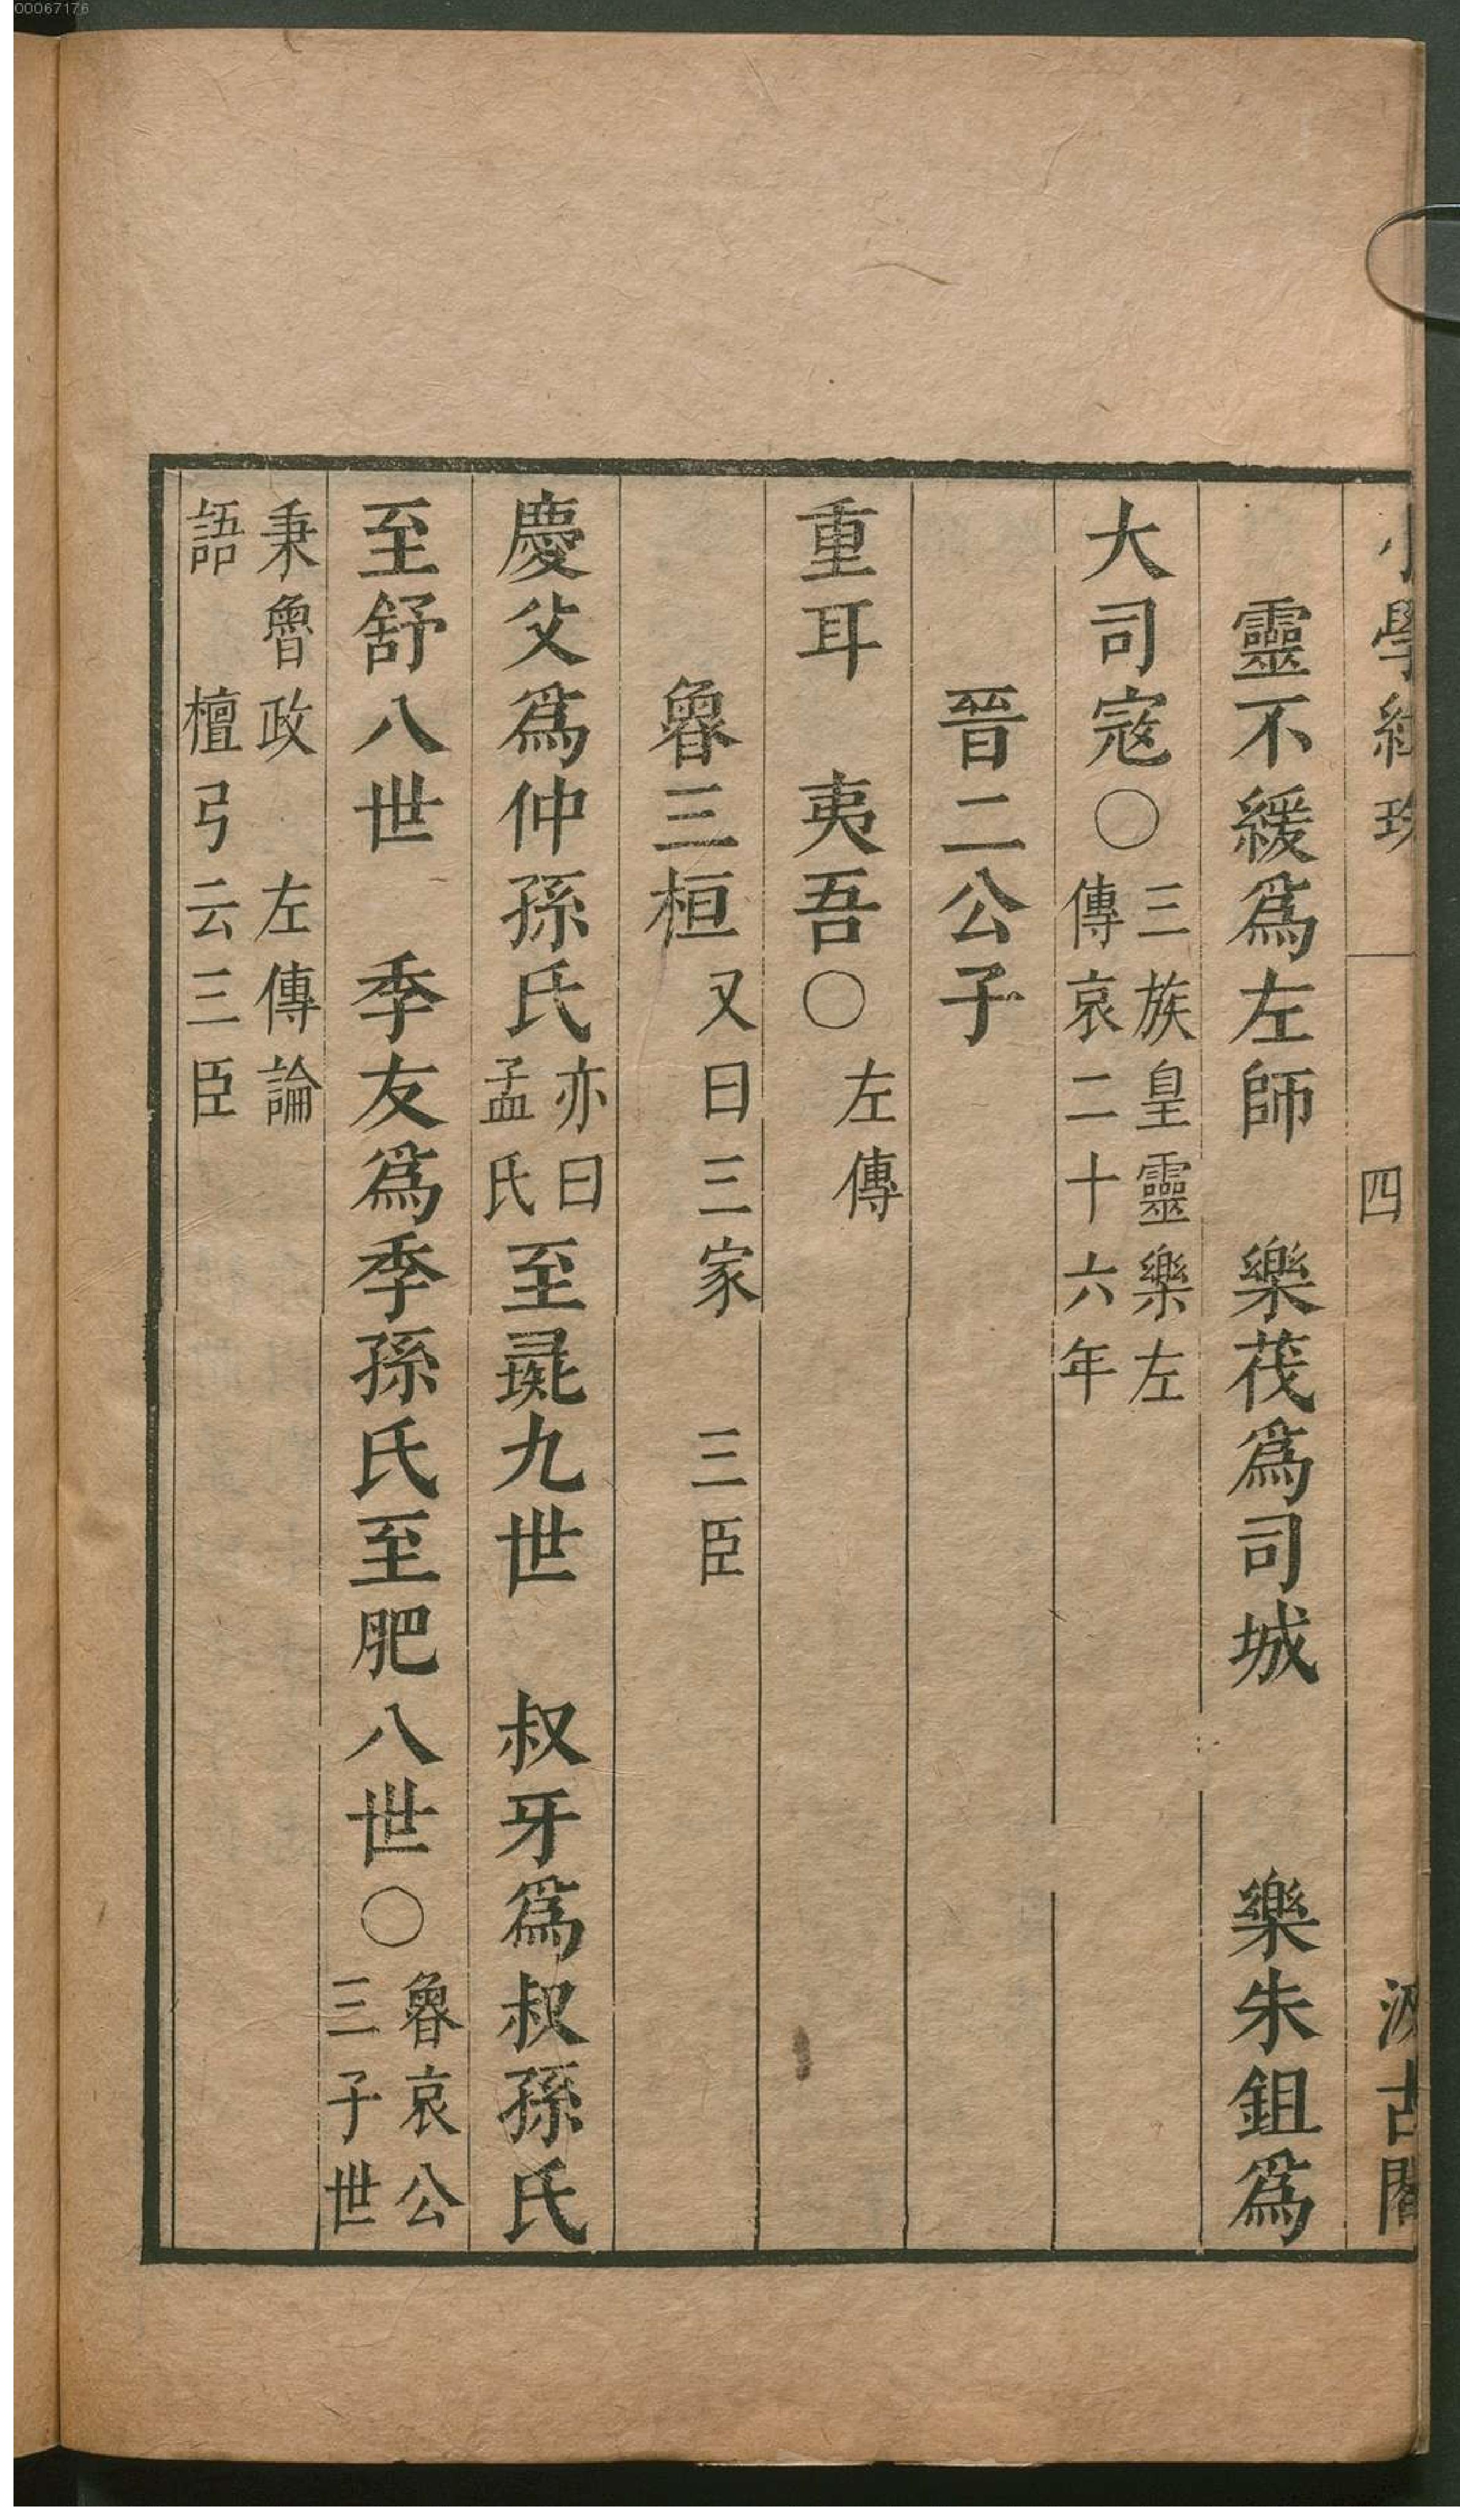 00067176
四
靈不緩爲左師　樂茷爲司城　樂朱鉏爲
大司寇〇三族皇靈樂左
傳哀二十六年
晉二公子
重耳　夷吾〇左傳
魯三桓又曰三家　三臣
慶父爲仲孫氏亦曰
孟氏
至彘九世　叔牙爲叔孫氏
至舒八世　季友爲季孫氏至肥八世〇魯哀公
三子世
秉魯政　左傳論
語　檀弓云三臣